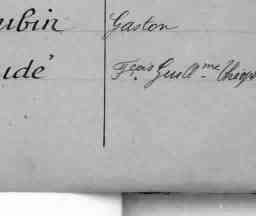 ubin Gaston
udé Fçois Guillme